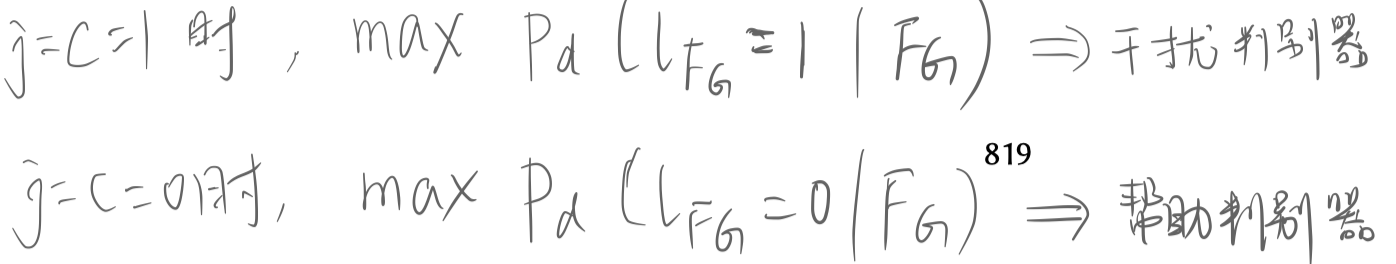 ĵ=C=1 时, max Pd (l_FG = 1 | FG) ⇒ 干扰判别器
819
ĵ=C=0时, max Pd (l_FG = 0 | FG) ⇒ 帮助判别器